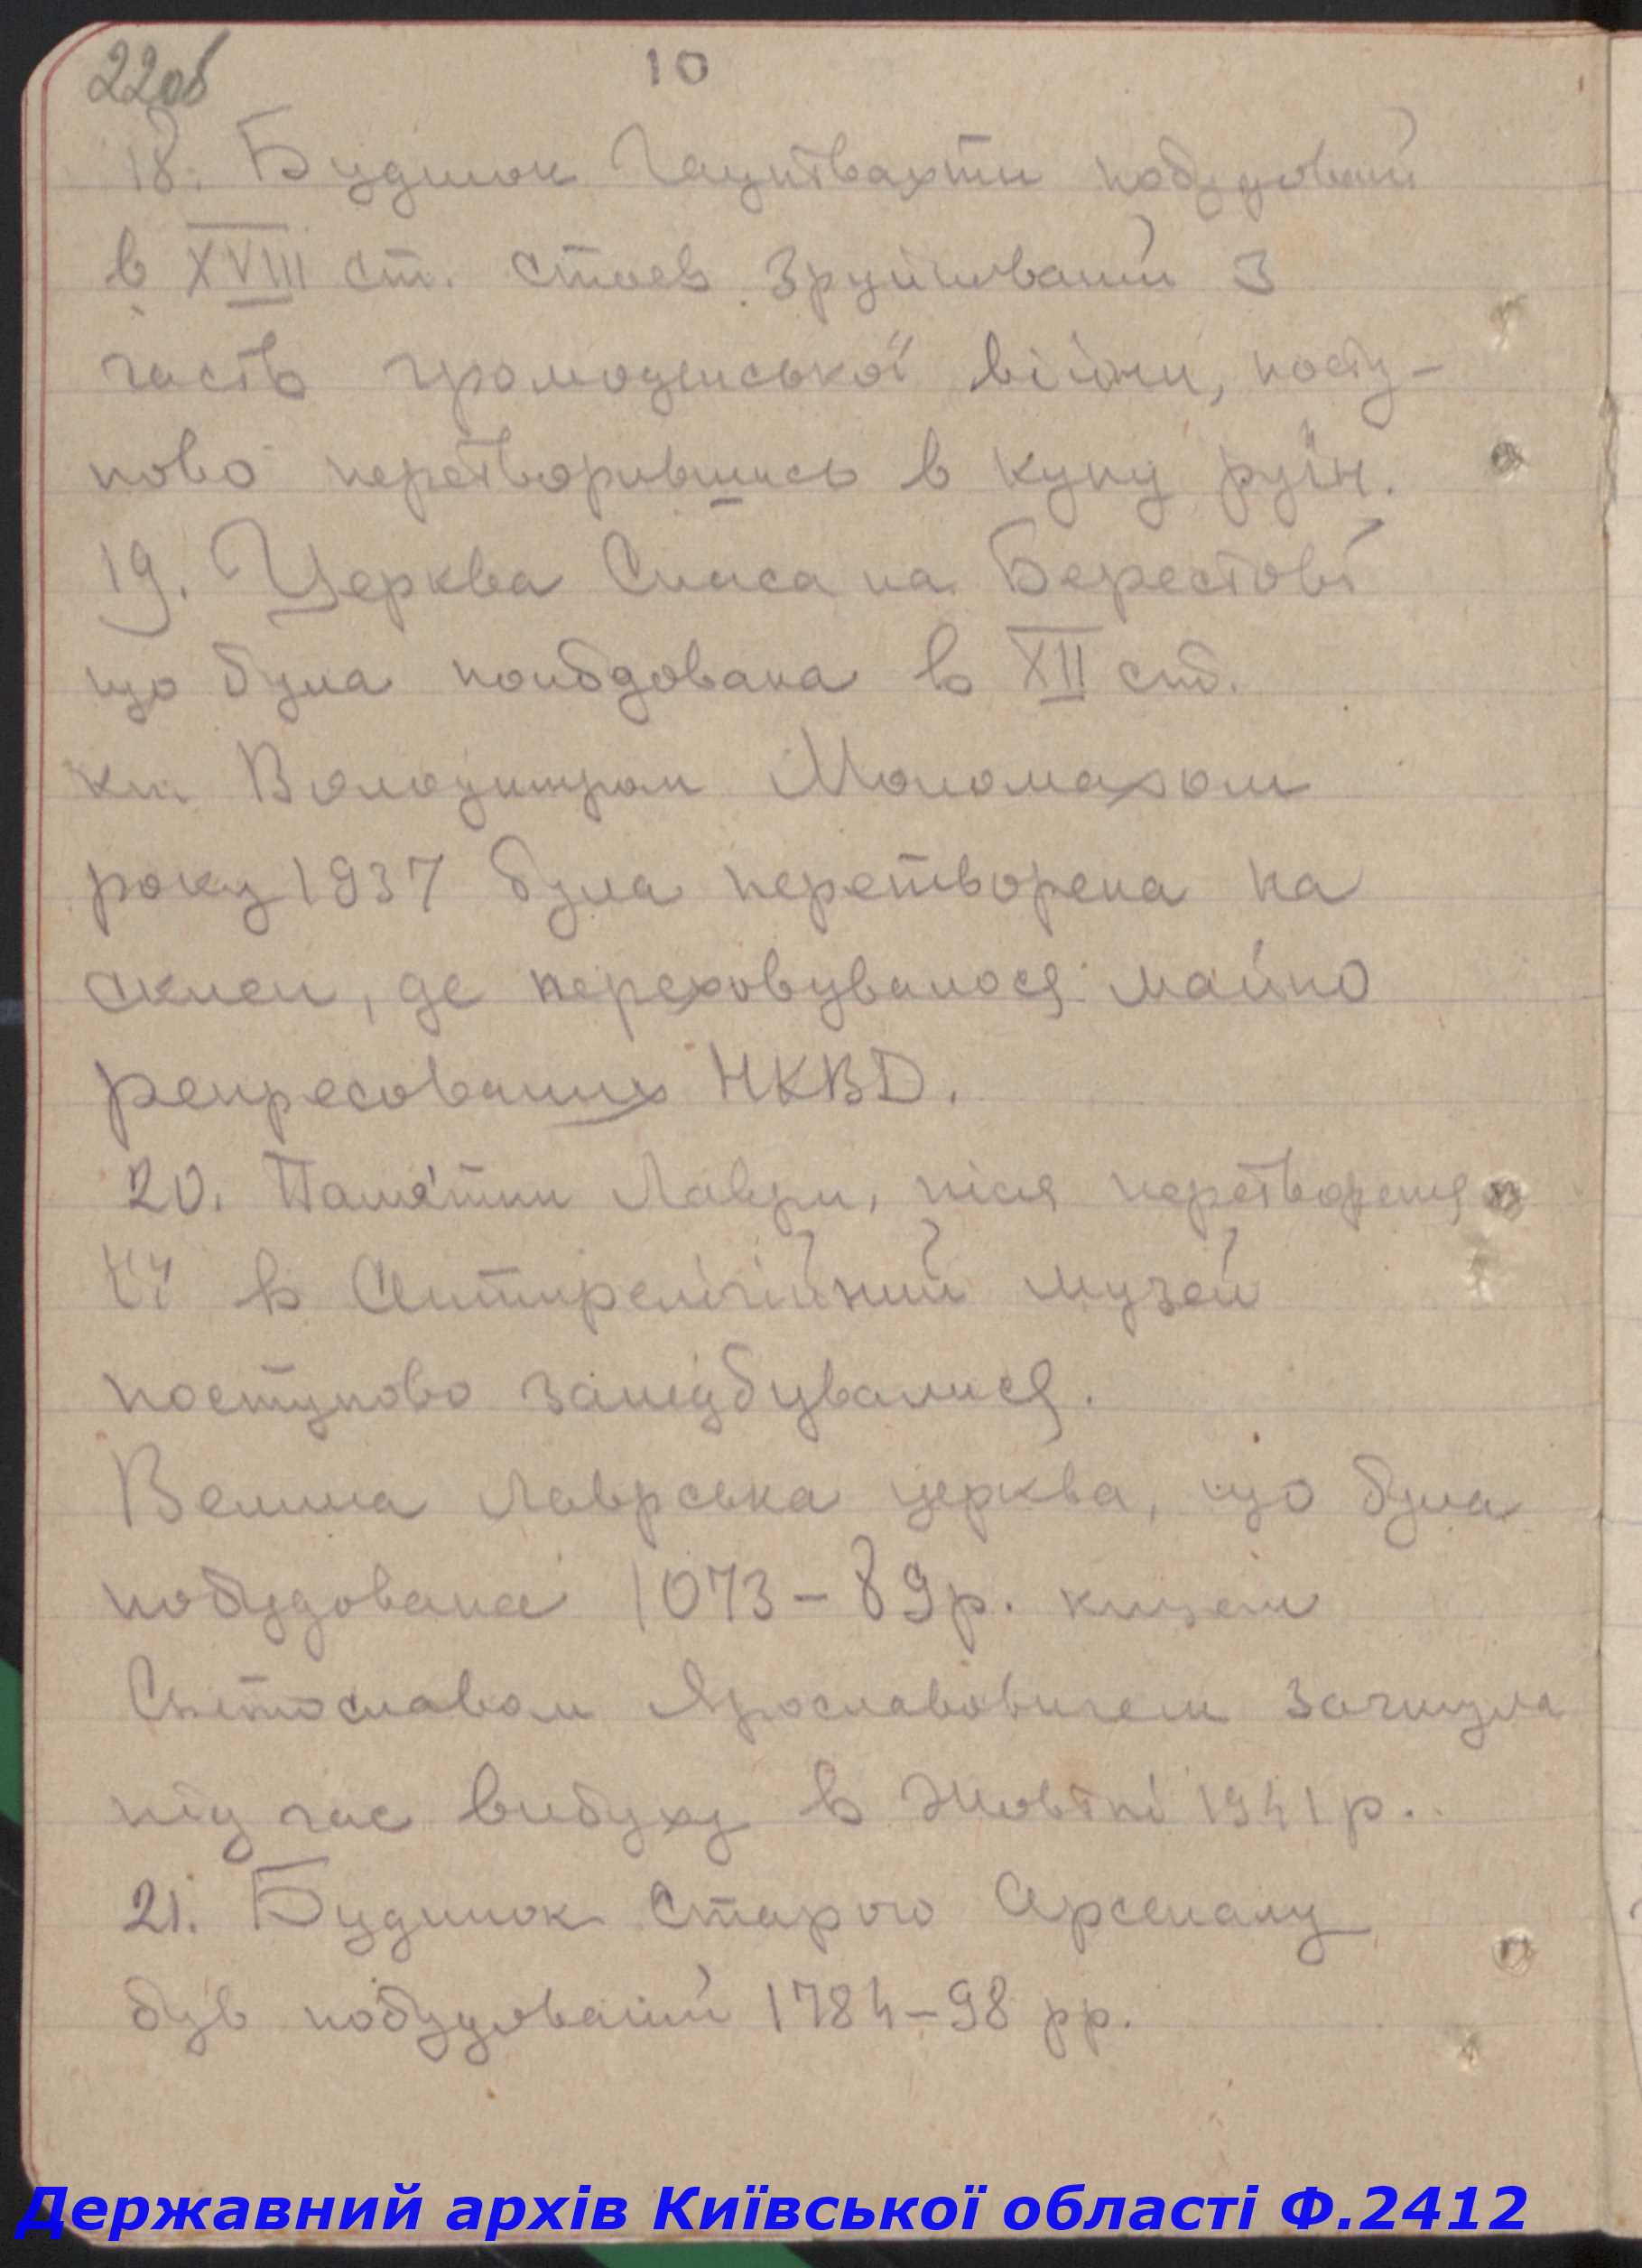 22об
10
18. Будинок Гауптвахти побудований
в XVIII ст. стояв зруйнований з
часів громадянської війни, посту-
пово перетворившись в купу руїн.
19. Церква Спаса на Берестові
що була поибдована в XII ст.
кн. Володимиром Мономахом
року 1937 була перетворена на
склеп, де переховувалося майно
репресованих НКВД.
20. Памятки Лаври, після перетворення
її в Антирелігійний музей
поступово занедбувалися.
Велика Лаврська церква, що була
побудована 1073-89р. князем
Святославом Ярославовичем загинула
під час вибуху в Жовтні 1941р.
21. Будинок Старого Арсеналу
був побудований 1784-98 рр.
Державний архів Київської області Ф.2412